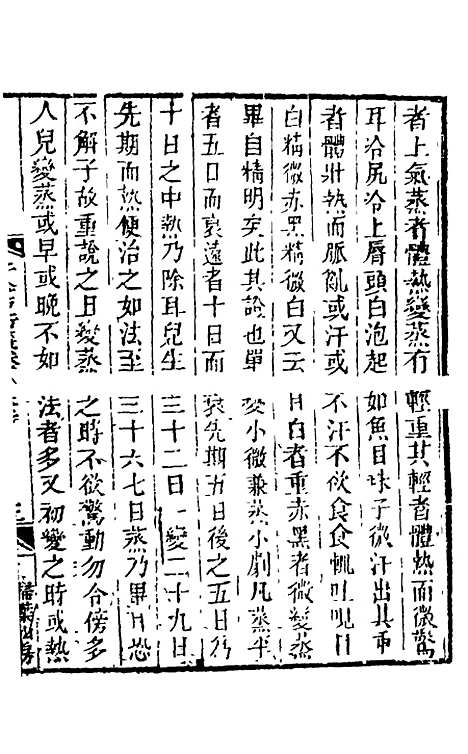 者上氣蒸者體熱變蒸有輕重其輕者體熱而微驚
耳冷尻冷上唇頭白泡起如魚目珠子微汗出其重
者體壯熱而脈亂或汗或不汗不欲食食輒吐哯目
白精微赤黑精微白又云目白者重赤黑者微變蒸
畢自精明矣此其證也單變小微兼蒸小劇凡蒸平
者五日而衰遠者十日而衰先期五日後之五日為
十日之中熱乃除耳兒生三十二日一變二十九日
先期而熱便治之如法至三十六七日蒸乃畢耳恐
不解子故重說之且變蒸之時不欲驚動勿令傍多
人兒變蒸或早或晚不如法者多又初變之時或熱
掃葉山房